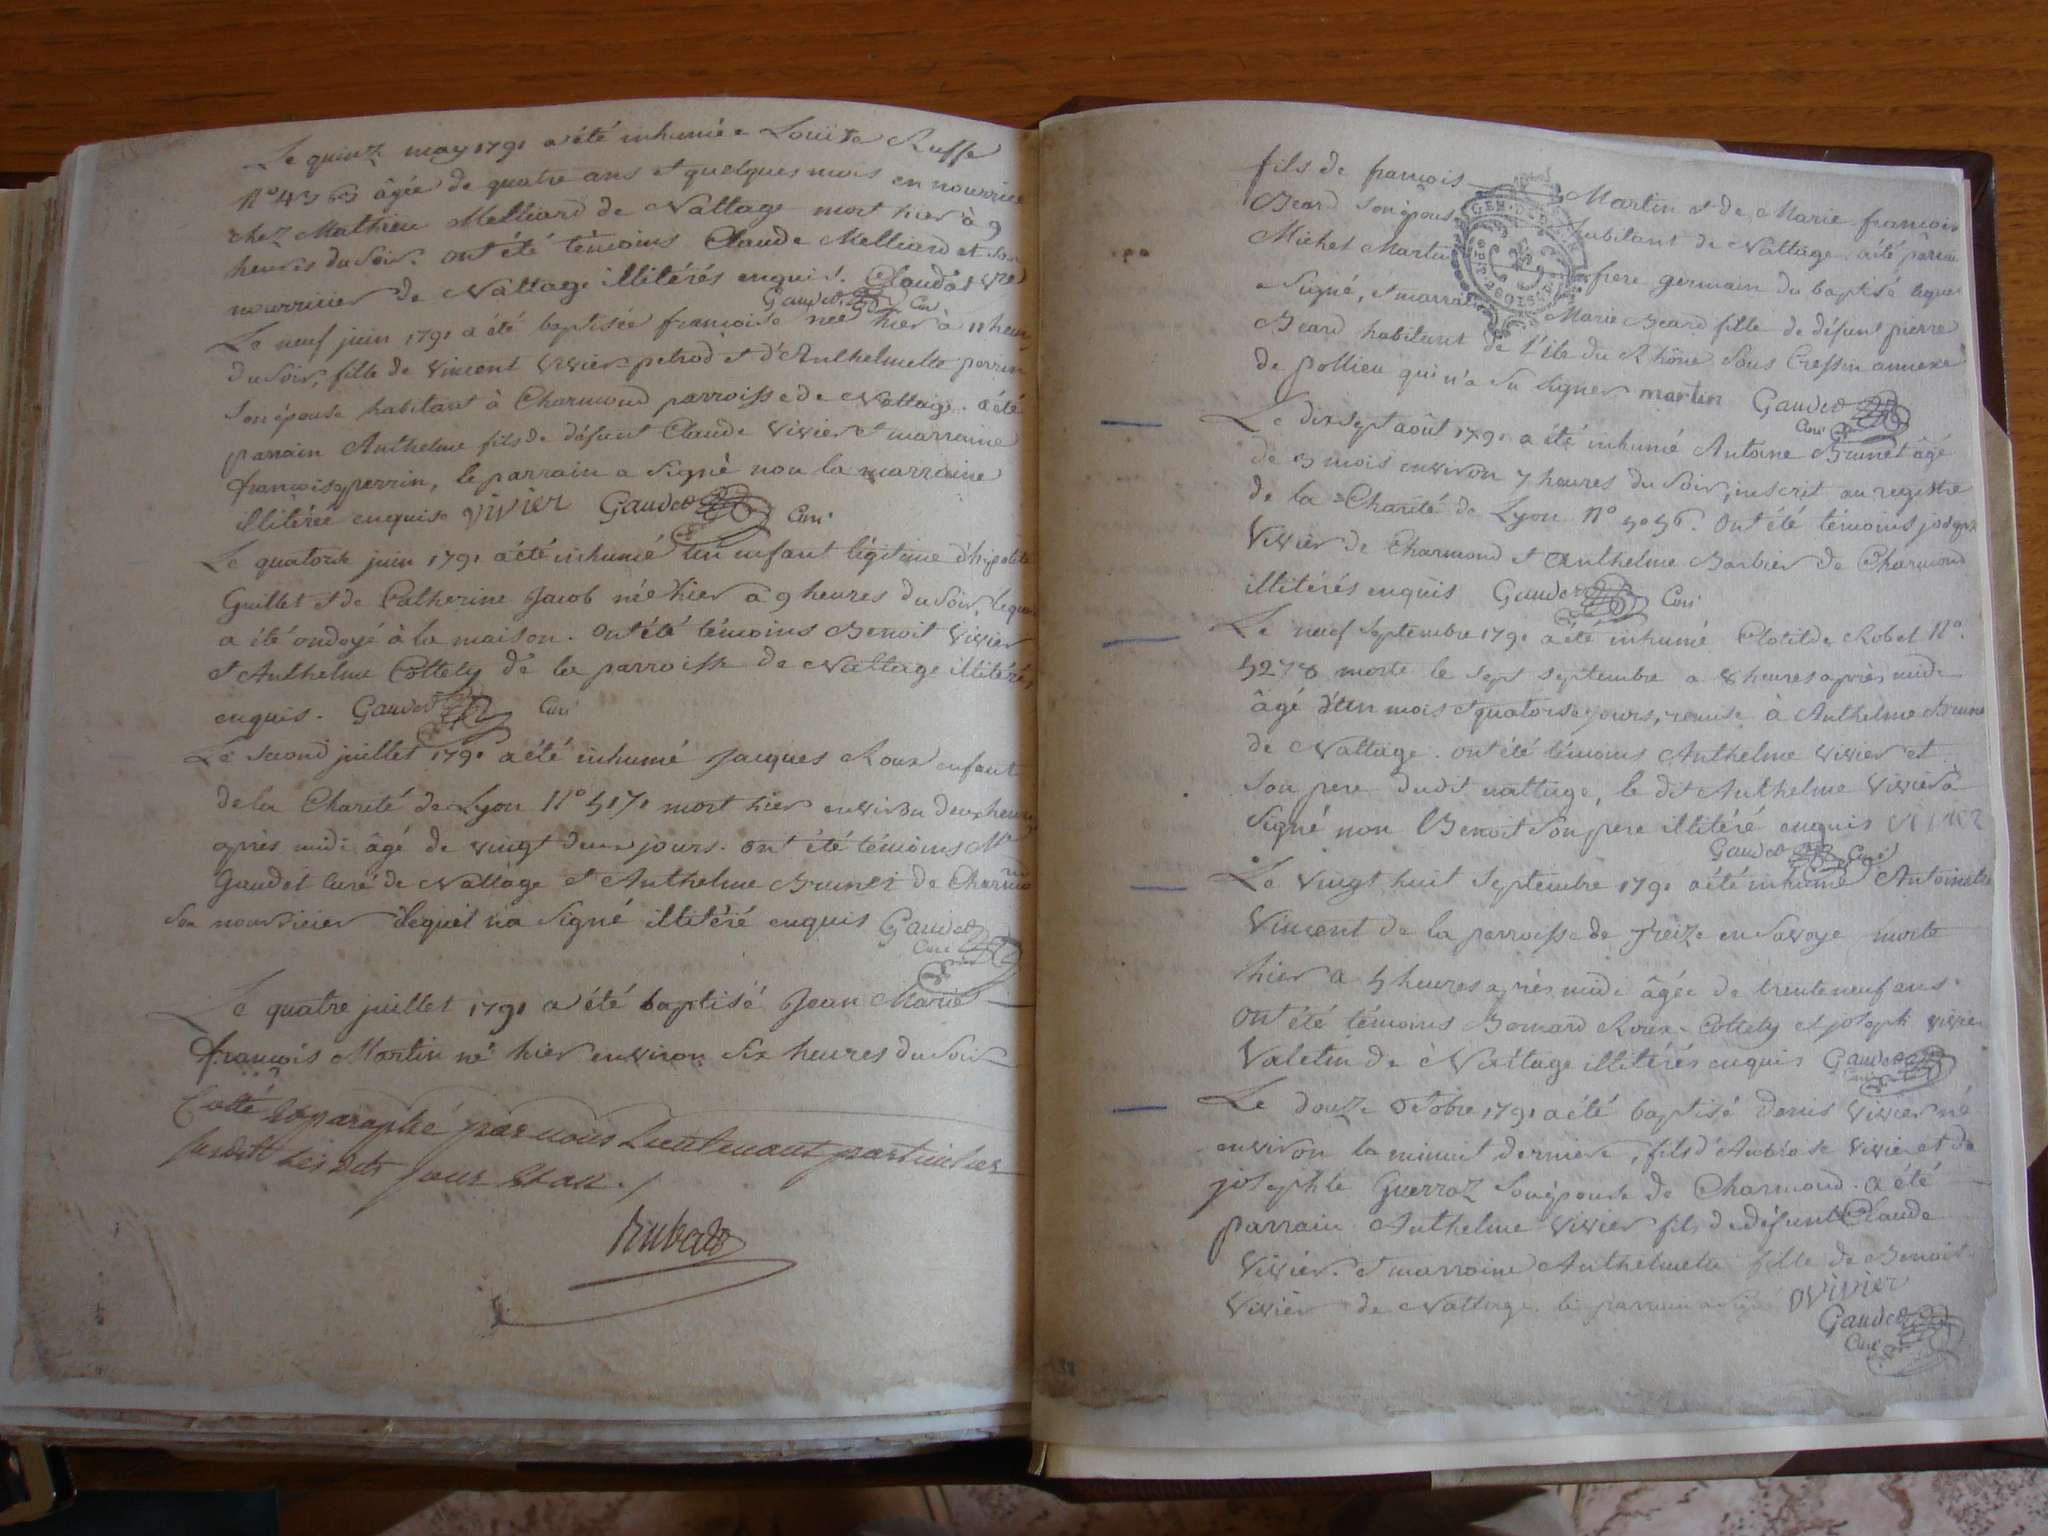 Le quinze may 1791 a été inhumée Louise Ruffe
n° 4363 âgée de quatre ans et quelques mois en nourrice
chez Mathieu Melliard de Nattage mort hier à 9
heures du soir. ont été témoins Claude Melliard et son
nourricier de Nattage illitérés enquis.
Gaudet Curé
Le neuf juin 1791 a été baptisée françoise née hier à 11 heures
du soir, fille de Vincent Vivier petrod et d'Anthelmette perrin
son épouse habitant à Charmond parroisse de Nattage. a été
parrain Anthelme fils de défunt Claude Vivier et marraine
françoise perrin, le parrain a signé non la marraine
illitérée enquise vivier Gaudet Curé
Le quatorze juin 1791 a été inhumé un enfant légitime d'hipolite
Guillet et de Catherine Jacob né hier à 9 heures du soir, lequel
a été ondoyé à la maison. ont été témoins Benoit Vivier
et Anthelme Collety de la parroisse de Nattage illitérés
enquis. Gaudet Curé
Le second juillet 1791 a été inhumé Jacques Roux enfant
de la Charité de Lyon n° 5171 mort hier environ deux heures
après midi âgé de vingt deux jours. ont été témoins Mre
Gaudet curé de Nattage et Anthelme Brunet de Charmond
son nourricier lequel n'a signé illitéré enquis Gaudet
Curé
Le quatre juillet 1791 a été baptisé Jean Marie
françois Martin né hier environ six heures du soir
Cotté et paraphé par nous Lieutenant particulier
susdit les dits jour et an./
Rubat
fils de françois Martin et de Marie françoise
Beard son épouse habitant de Nattage. a été parrain
Michel Martin frere germain du baptisé lequel
a signé, et marraine Marie Beard fille de défunt pierre
Beard habitant de l'ile du Rhône sous Cressin annexe
de pollieu qui n'a su signer martin Gaudet
Curé
Le dix sept août 1791 a été inhumé Antoine Brunet âgé
de 3 mois environ 7 heures du soir, inscrit au registre
de la Charité de Lyon n° 5056. ont été témoins joseph
Vivier de Charmond et Anthelme Barbier de Charmond
illitérés enquis Gaudet Curé
Le neuf septembre 1791 a été inhumé Clotilde Robel n°.
5278 morte le sept septembre a 8 heures après midi
âgé d'un mois et quatorze jours, remise à Anthelme Brune
de Nattage. ont été témoins Anthelme Vivier et
son pere dudit nattage, le dit Anthelme Vivier a
signé non Benoit son pere illitéré enquis VIVIER
Gaudet Curé
Le vingt huit septembre 1791 a été inhumé Antoinette
Vincent de la parroisse de en Savoye morte
hier a 5 heures après midi âgée de trente neuf ans.
ont été témoins Bernard Roux-Collety et joseph vivier
Valetin de Nattage illitérés enquis Gaudet
Curé
Le douze octobre 1791 a été baptisé Denis Vivier né
environ la minuit derniere, fils d'Anbroise Vivier et de
josephte Guerraz son épouse de Charmond. a été
parrain Anthelme Vivier fils de défunt Claude
Vivier. et marraine Anthelmette fille de Benoit
Vivier de Nattage. le parrain a signé VIVIER
Gaudet
Curé